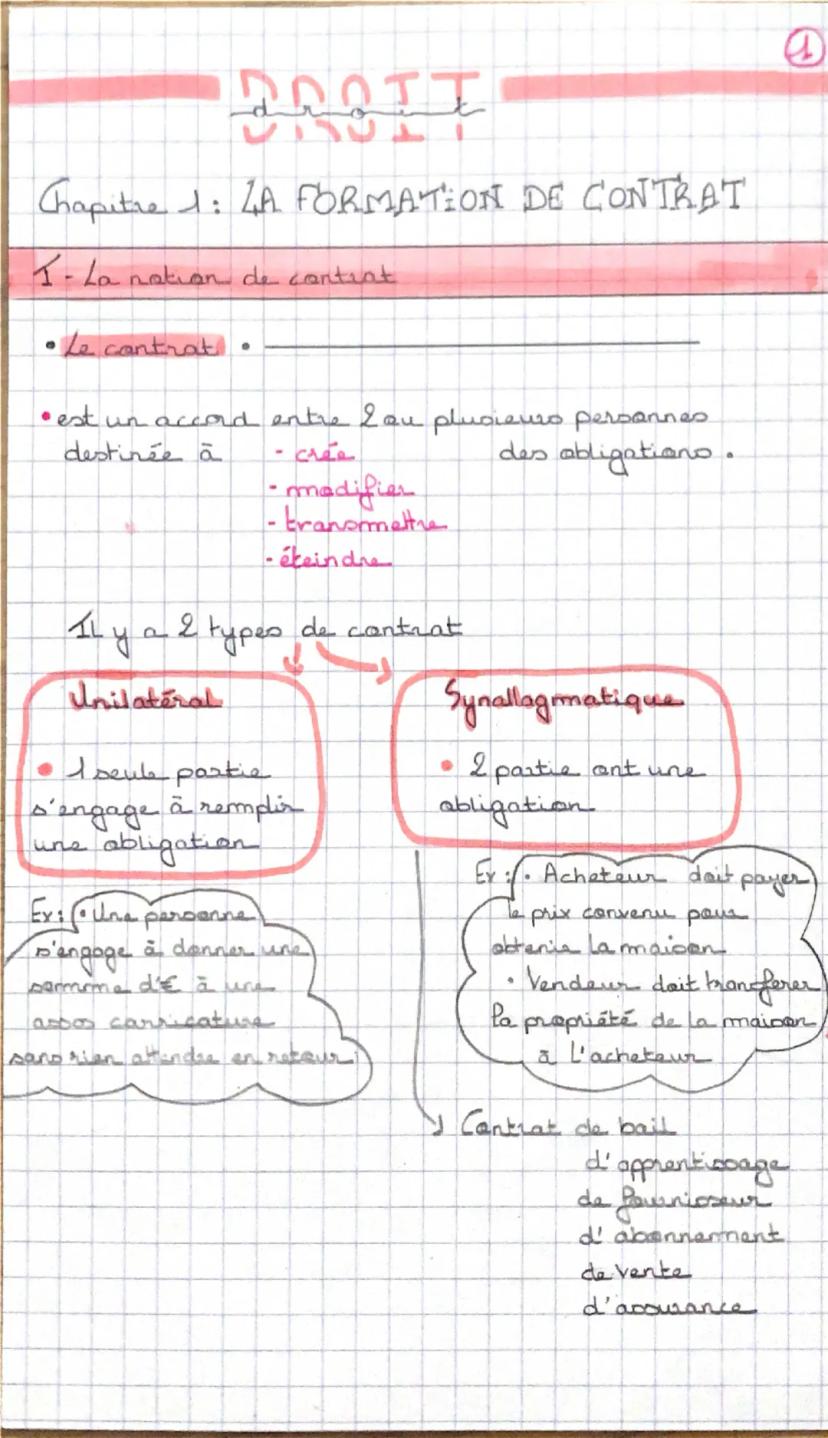 1
droit
Chapitre 1 : LA FORMATION DE CONTRAT
I - La notion de contrat
• Le contrat •
• est un accord entre 2 ou plusieurs personnes
destinée à - crée des obligations.
- modifier
- transmettre
- éteindre
IL y a 2 types de contrat
Unilatéral
• 1 seule partie
s'engage à remplir
une obligation
Ex : • Une personne
s'engage à donner une
somme d'€ à une
assos carricature
sans rien attendre en retour
Synallagmatique
• 2 partie ont une
obligation
Ex : • Acheteur doit payer
le prix convenu pour
obtenir la maison
• Vendeur doit transferer
la propriété de la maison
à L'acheteur
Contrat de bail
d'apprentissage
de fournisseur
d'abonnement
de vente
d'assurance